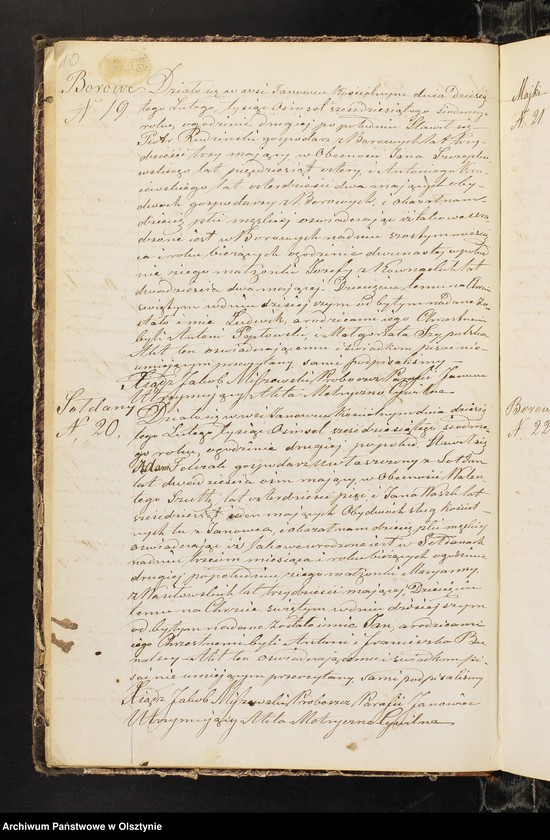 10
Borowe
N. 19.
Działo się w wsi Janowcu Kościelnym dnia dziesią-
tego Lutego, tysiąc Ośmset sześćdziesiątego siódmego
roku, o godzinie drugiej po południu Stawił się
Piotr Rudziński gospodarz z Borowych lat trzy-
dzieści trzy mający, w Obecności Jana
lat pięćdziesiąt cztery, i Antoniego
lat czterdzieści dwa mających oby-
dwóch gospodarzy z Borowych, i okazał nam
dziecię płci męzkiej oświadczając iż takowe uro-
dzone jest w Borowych na dniu szóstym miesią-
ca i roku bieżących o godzinie dwunastej w połud-
nie z jego małżonki Józefy z lat
dwadzieścia dwa mającej. Dziecięciu temu na Chrzcie
świętym w dniu dzisiejszym odbytym nadane zo-
stało imie Ludwik, a rodzicami jego Chrzestnemi
byli Antoni i Małgorzata
Akt ten oświadczającemu i świadkom pisać nie-
umiejącym przeczytany, sami podpisaliśmy
Xiądz Jakób Myszewski Proboszcz Parafii Janowiec
Utrzymujący Akta Metryczno Cywilne
Sołdany
N. 20.
Działo się w wsi Janowcu Kościelnym dnia dziesią-
tego Lutego tysiąc Ośmset sześćdziesiątego siódme-
go roku, o godzinie drugiej po połud. Stawił się
Adam gospodarz z Sołdan
lat dwadzieścia ośm mający, w Obecności Walen-
tego lat czterdzieści pięć, i Jana lat
sześćdziesiąt jeden mających Obydwóch sług kościel-
nych tu z Janowca, i okazał nam dziecię płci męzkiej
oświadczając iż takowe urodzone jest w Sołdanach
na dniu trzecim miesiąca i roku bieżących o godzinie
drugiej po południu, z jego małżonki Maryanny
z lat trzydzieści mającej. Dziecięciu
temu na Chrzcie świętym w dniu dzisiejszym
odbytym nadane zostało imie Jan, a rodzicami
jego Chrzestnemi byli Antoni i Franciszka
Akt ten oświadczającemu i świadkom pi-
sać nie umiejącym przeczytany, sami podpisaliśmy
Xiądz Jakób Myszewski Proboszcz Parafii Janowiec
Utrzymujący Akta Metryczno Cywilne
Majki
N. 21
Borow
N. 22
Archiwum Państwowe w Olsztynie